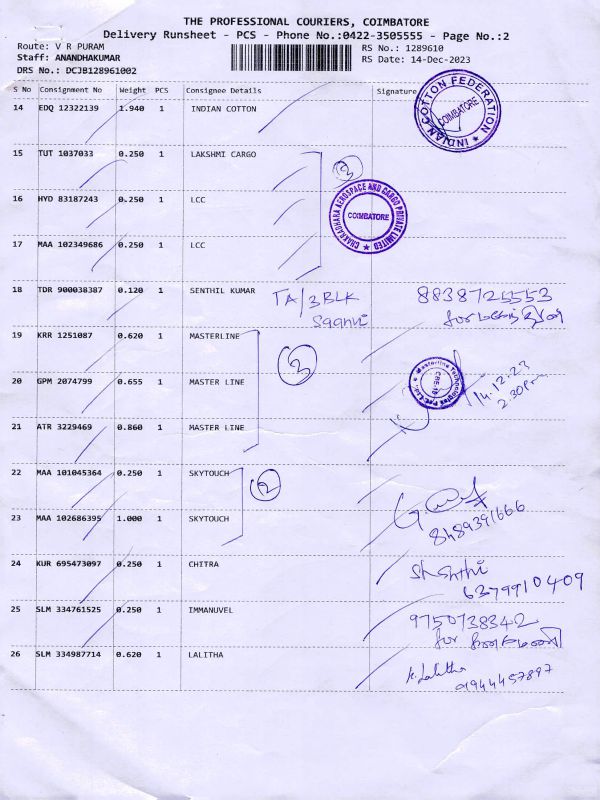 THE PROFESSIONAL COURIERS, COIMBATORE
Delivery Runsheet - PCS - Phone No.:0422-3505555 - Page No.:2
Route: V R PURAM
RS No.: 1289610
Staff: ANANDHAKUMAR
RS Date: 14-Dec-2023
DRS No.: DCJB128961002
S No Consignment No Weight PCS Consignee Details Signature
14 EDQ 12322139 1.940 1 INDIAN COTTON
INDIAN COTTON FEDERATION ★ COIMBATORE
15 TUT 1037033 0.250 1 LAKSHMI CARGO
3
16 HYD 83187243 0.250 1 LCC
CHAKRADHARA AEROSPACE AND CARGO PRIVATE LIMITED ★ COIMBATORE
17 MAA 102349686 0.250 1 LCC
18 TDR 900038387 0.120 1 SENTHIL KUMAR TA/3BLK 8838725553
for
19 KRR 1251087 0.620 1 MASTERLINE
3
20 GPM 2074799 0.655 1 MASTER LINE
Masterline Technologies
14.12.23
2.30pm
21 ATR 3229469 0.860 1 MASTER LINE
22 MAA 101045364 0.250 1 SKYTOUCH
2
23 MAA 102686395 1.000 1 SKYTOUCH
8489391666
24 KUR 695473097 0.250 1 CHITRA
6379910409
25 SLM 334761525 0.250 1 IMMANUVEL 9750738342
for
26 SLM 334987714 0.620 1 LALITHA K. Lalitha
9944457897